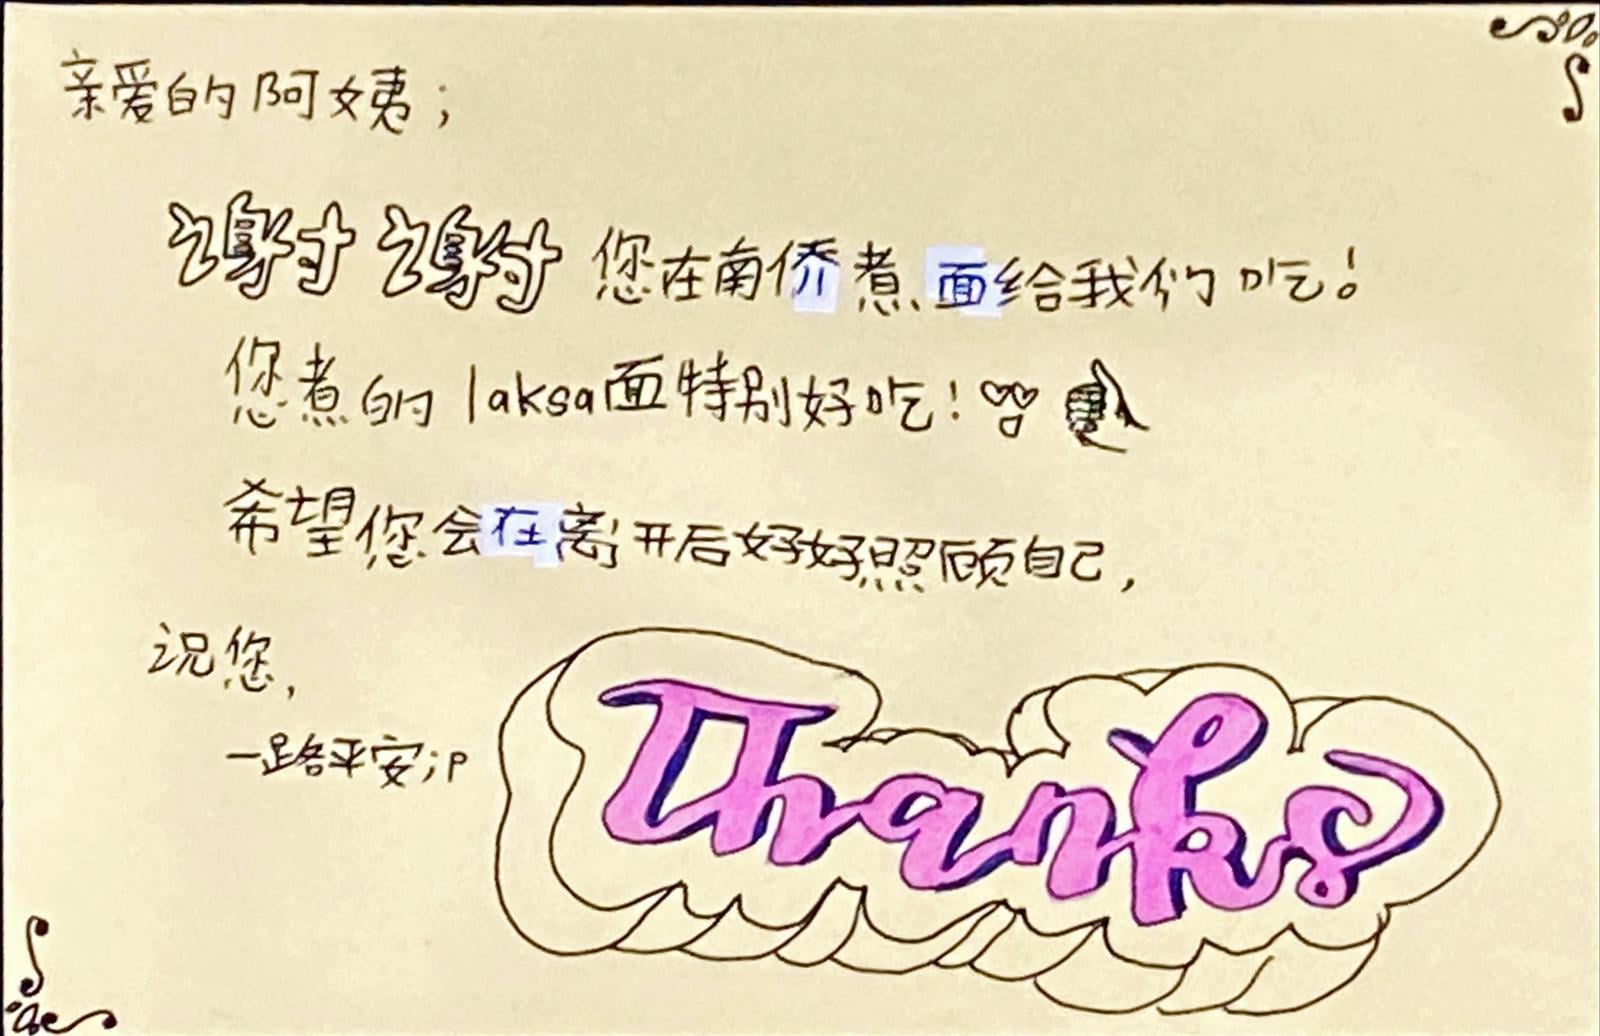 亲爱的阿姨；
谢谢您在南侨煮面给我们吃！
您煮的laksa面特别好吃！
希望您会在离开后好好照顾自己，
祝您，
一路平安；p
Thanks